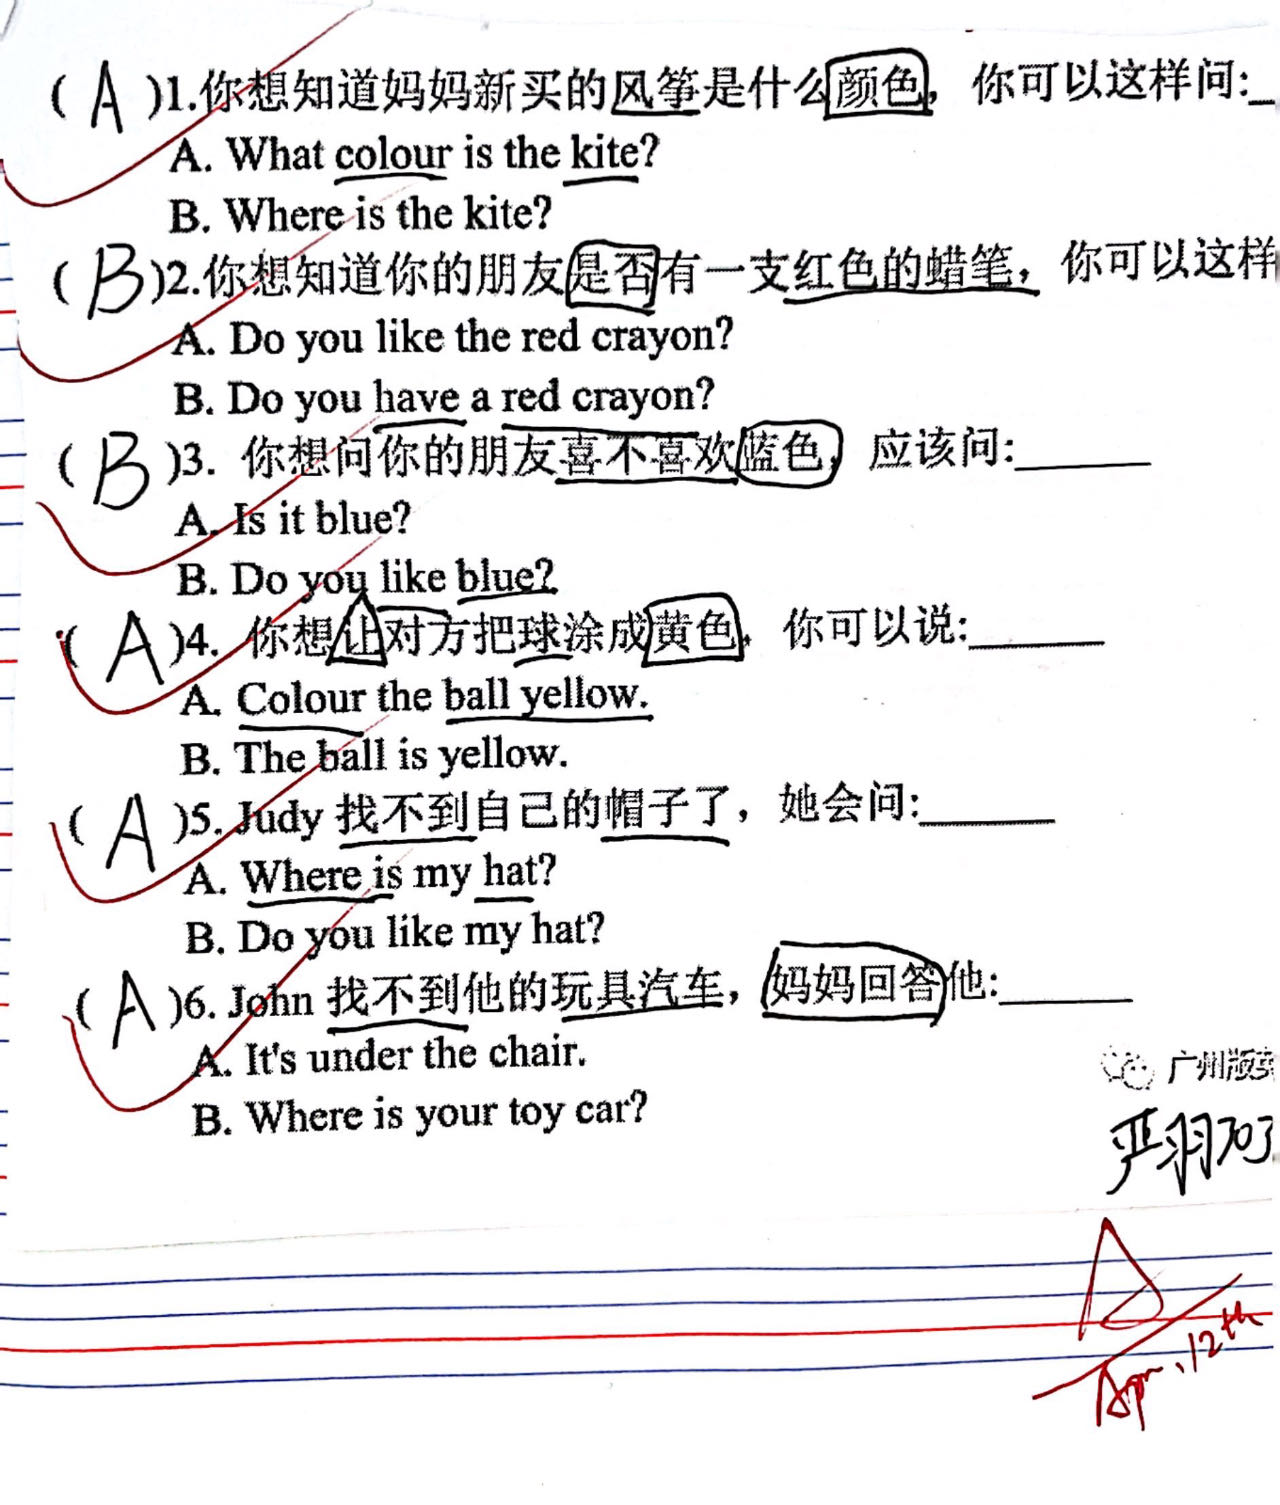 ( A )1.你想知道妈妈新买的风筝是什么颜色，你可以这样问:_
A. What colour is the kite?
B. Where is the kite?
( B )2.你想知道你的朋友是否有一支红色的蜡笔，你可以这样
A. Do you like the red crayon?
B. Do you have a red crayon?
( B )3. 你想问你的朋友喜不喜欢蓝色，应该问:______
A. Is it blue?
B. Do you like blue?
( A )4. 你想让对方把球涂成黄色，你可以说:______
A. Colour the ball yellow.
B. The ball is yellow.
( A )5. Judy 找不到自己的帽子了，她会问:______
A. Where is my hat?
B. Do you like my hat?
( A )6. John 找不到他的玩具汽车，妈妈回答他:______
A. It's under the chair.
B. Where is your toy car?
广州版
703
A
Apr. 12th